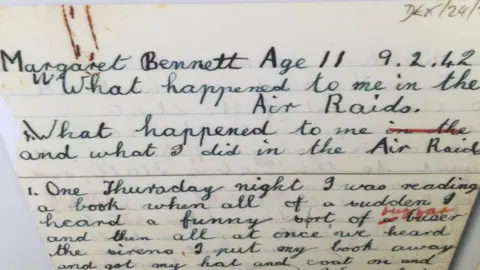 DEX/24/
Margaret Bennett Age 11 9.2.42
What happened to me in the
Air Raids.
What happened to me in the
and what I did in the Air Raid
1. One Thursday night I was reading
a book when all of a sudden I
heard a funny sort of buzer
and then all at once we heard
the sirens. I put my book away
and got my hat and coat on and